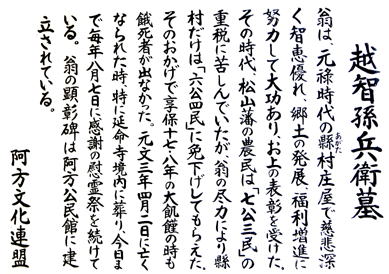 越智孫兵衛墓
翁は、元禄時代の縣村庄屋で慈悲深
あがた
く智恵優れ、郷土の発展、福利増進に
努力して大功あり、お上の表彰を受けた。
その時代、松山藩の農民は、「七公三民」の
重税に苦しんでいたが、翁の尽力により縣
村だけは、「六公四民」に免下げしてもらえた。
そのおかげで享保十七・八年の大飢饉の時も
餓死者が出なかった。元文三年四月二日に亡く
なられた時、特に延命寺境内に葬り、今日ま
で毎年八月七日に感謝の慰霊祭を続けて
いる。翁の顕彰碑は阿方公民館に建
立されている。
阿方文化連盟